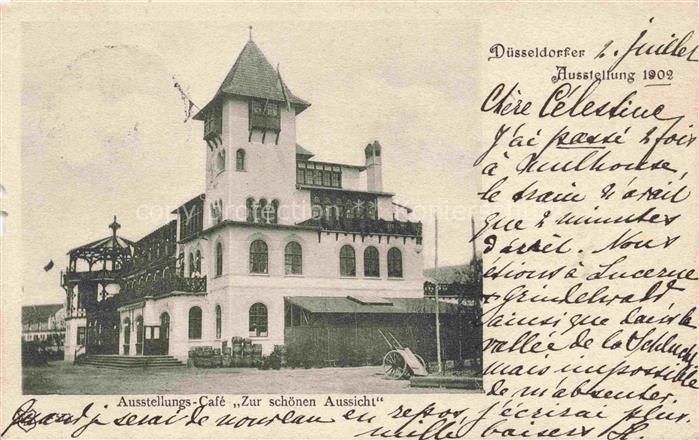 Düsseldorfer
Ausstellung 1902
2 juillet
Chère Célestine
J'ai passé 2 fois
à Mulhouse,
le train n'avait
que 2 minutes
d'arrêt. Nous
étions à Lucerne
Grindelwald
ainsi que dans la
vallée de la Schlucht
mais impossible
de m'absenter.
Ausstellungs-Café „Zur schönen Aussicht“
Quand je serai de nouveau en repos j'écrirai plus
mille baisers